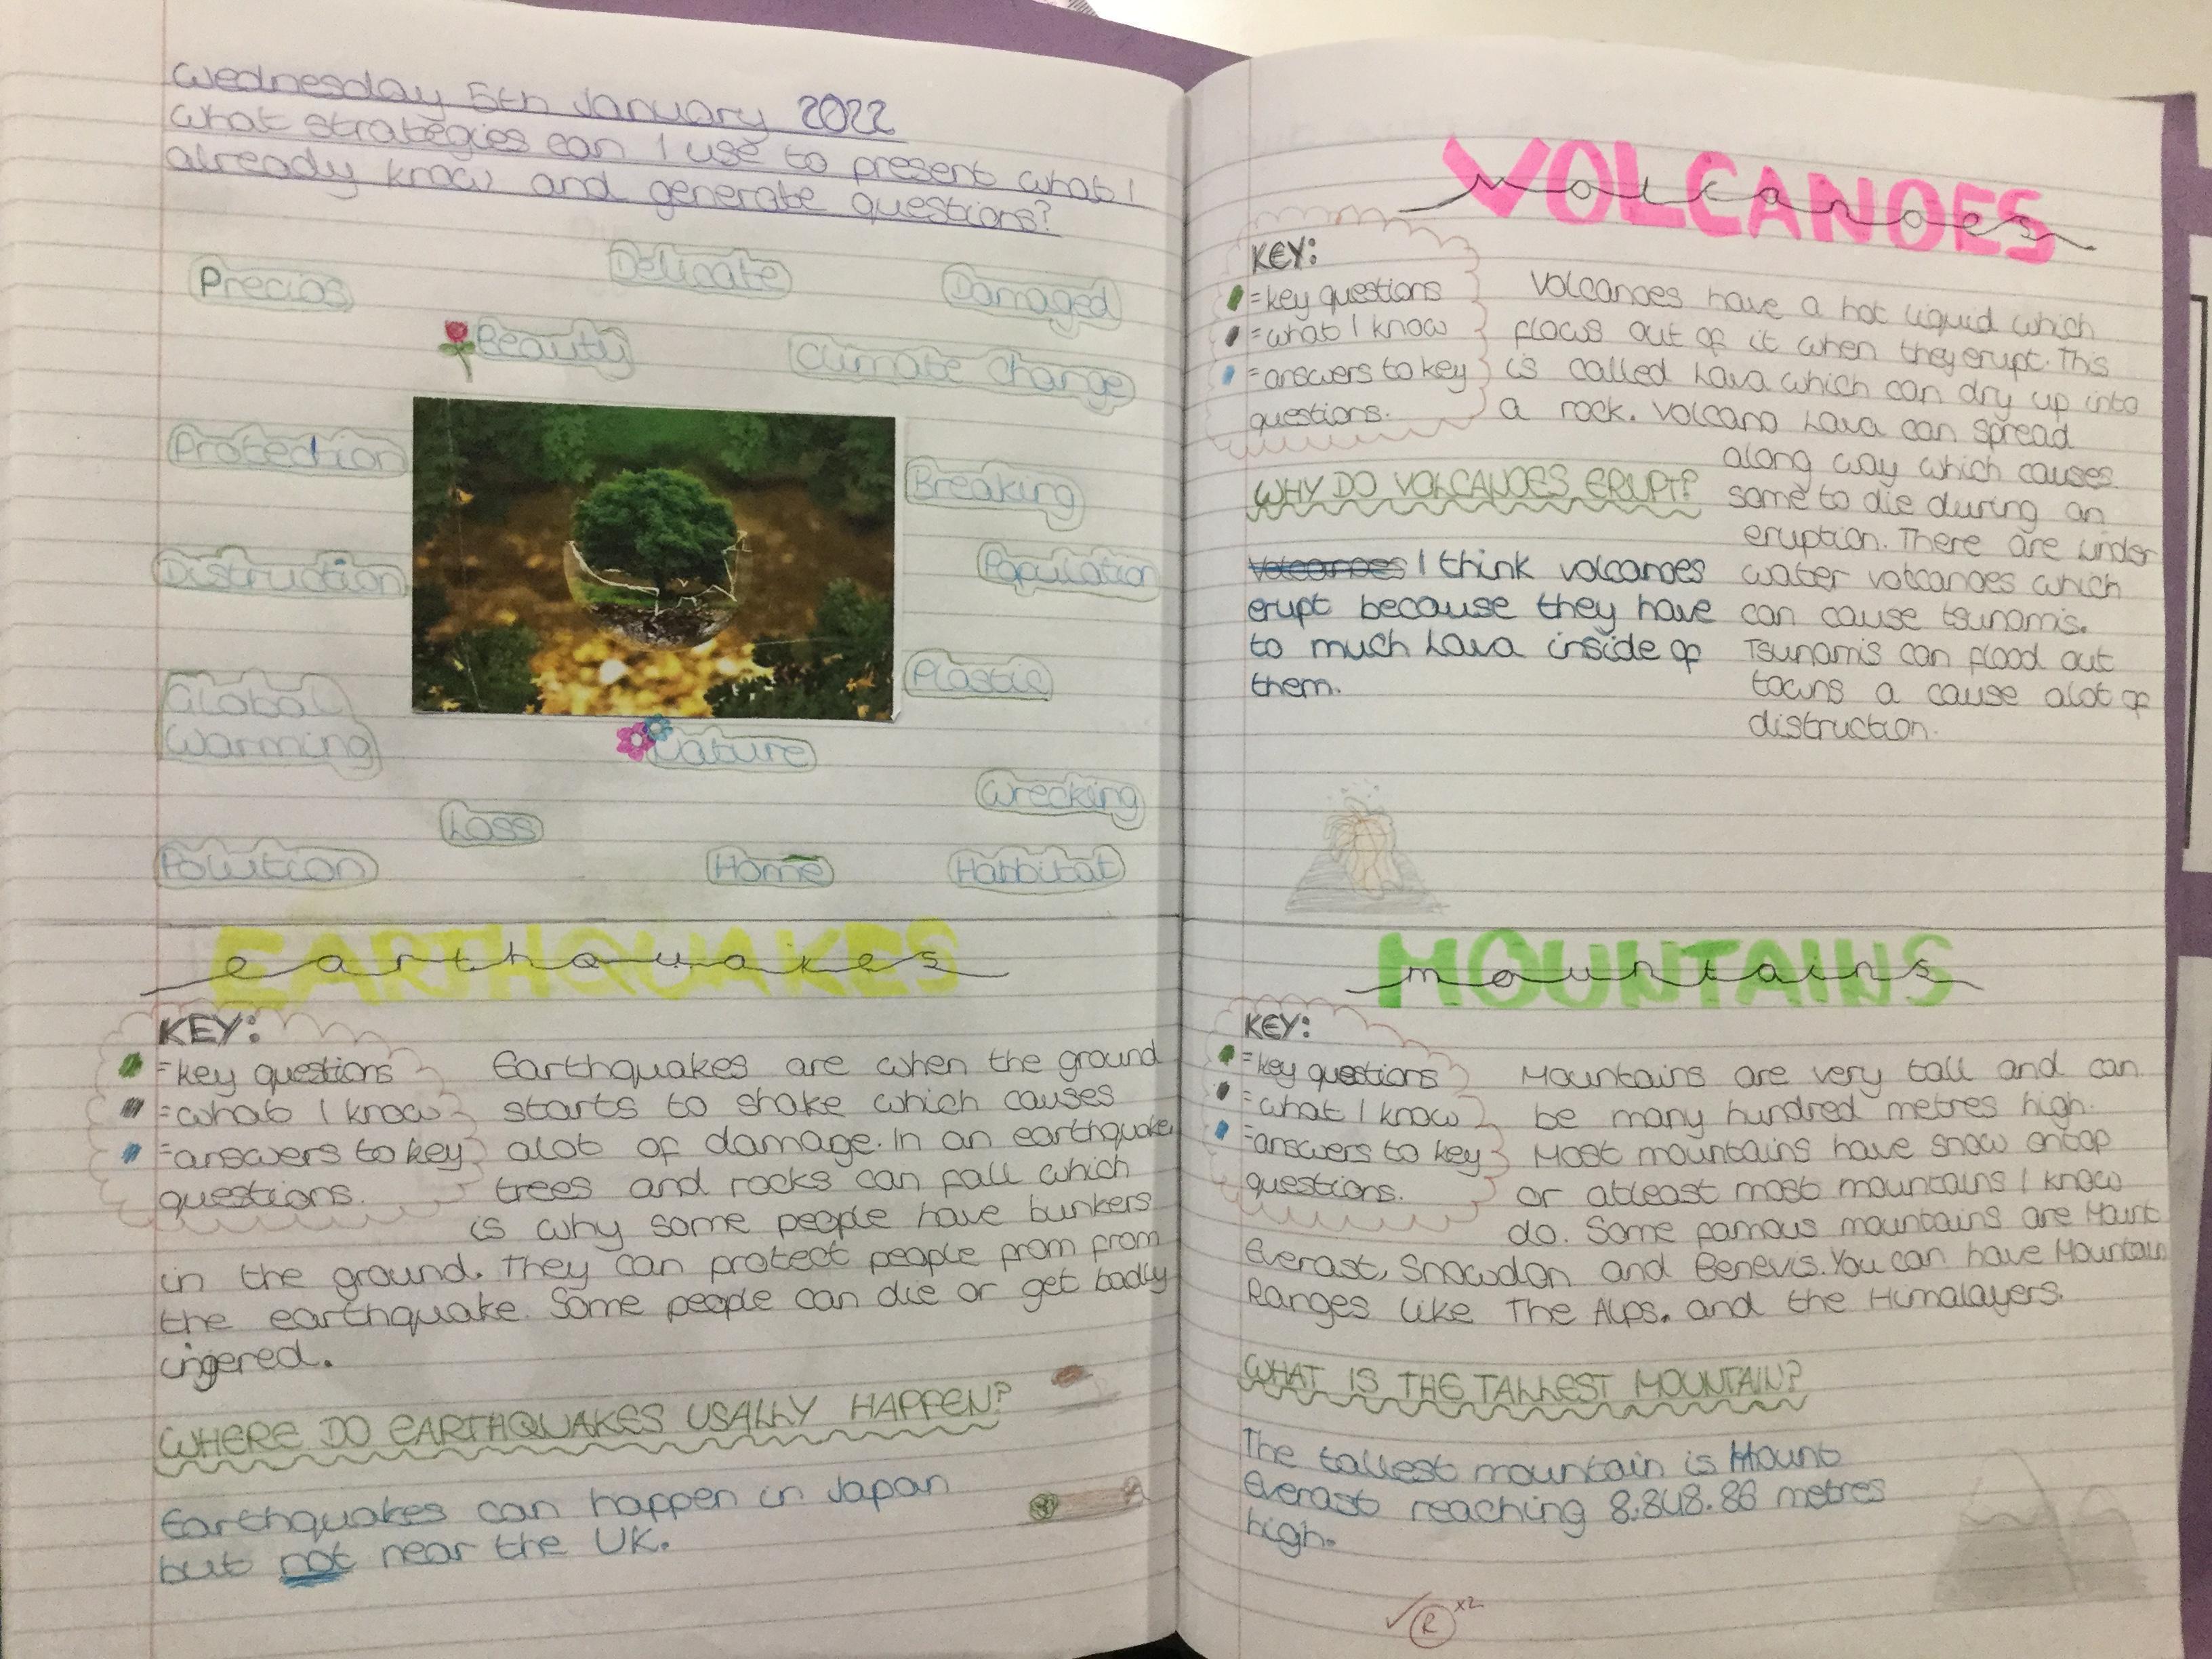 Wednesday 5th January 2022
What strategies can I use to present what I
already know and generate questions?
Precios
Delicate
Damaged
Beauty
Climate Change
Protection
Breaking
Distruction
Population
Global
Warming
Plastic
Nature
Wrecking
Loss
Polution
Home
Habbitat
EARTHQUAKES
earthquakes
KEY:
=key questions
=what I know
=answers to key
questions.
Earthquakes are when the ground
starts to shake which causes
alot of damage. In an earthquake
trees and rocks can fall which
is why some people have bunkers
in the ground. They can protect people from from
the earthquake. Some people can die or get badly
ingered.
WHERE DO EARTHQUAKES USALLY HAPPEN?
Earthquakes can happen in Japan
but not near the UK.
VOLCANOES
volcanoes
KEY:
=key questions
=what I know
=answers to key
questions.
Volcanoes have a hot liquid which
flows out of it when they erupt. This
is called Lava which can dry up into
a rock. Volcano Lava can spread
along way which causes
some to die during an
eruption. There are under
water volcanoes which
can cause tsunamis.
Tsunamis can flood out
towns a cause alot of
distruction.
WHY DO VOLCANOES ERUPT?
Volcanoes I think volcanoes
erupt because they have
to much Lava inside of
them.
MOUNTAINS
mountains
KEY:
=key questions
=what I know
=answers to key
questions.
Mountains are very tall and can
be many hundred metres high.
Most mountains have snow ontop
or atleast most mountains I know
do. Some famous mountains are Mount
Everast, Snowdon and Benevis. You can have Mountain
Ranges like The Alps. and the Himalayers.
WHAT IS THE TALLEST MOUNTAIN?
The tallest mountain is Mount
Everast reaching 8.848.86 metres
high.
R x2